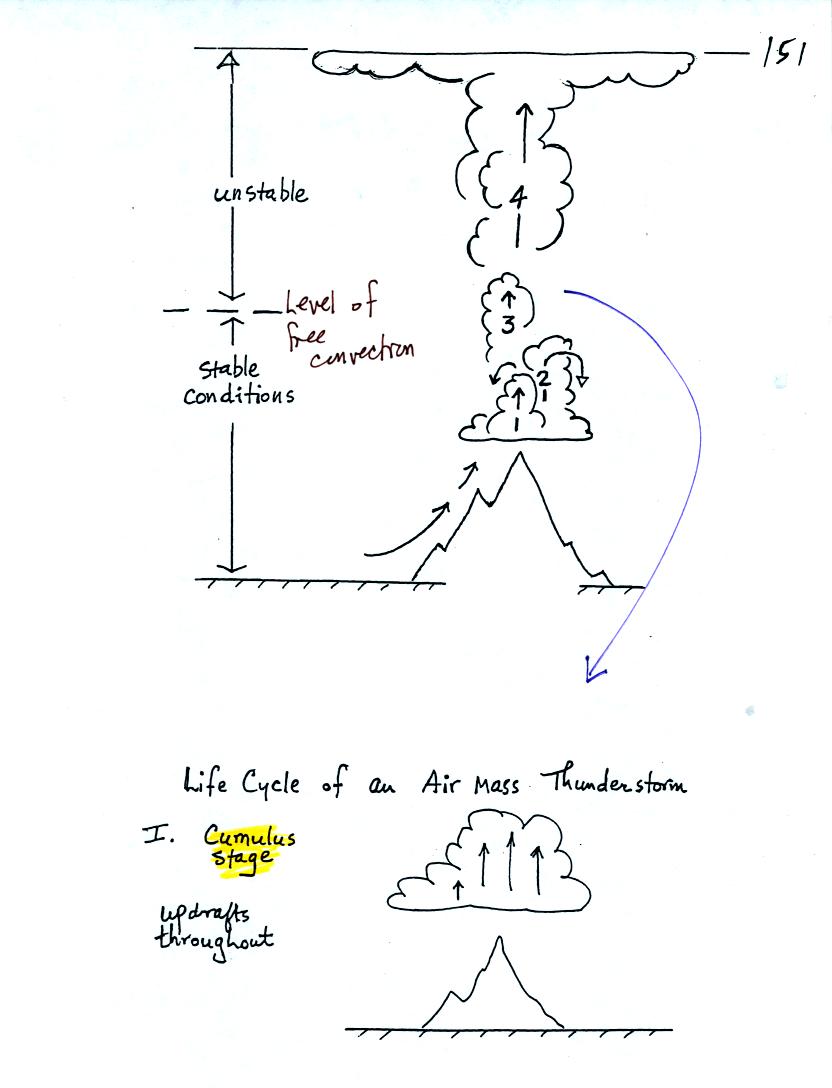 151
unstable
Level of
free
convection
stable
conditions
4
3
2
1
1
Life Cycle of an Air Mass Thunderstorm
I. Cumulus
stage
updrafts
throughout